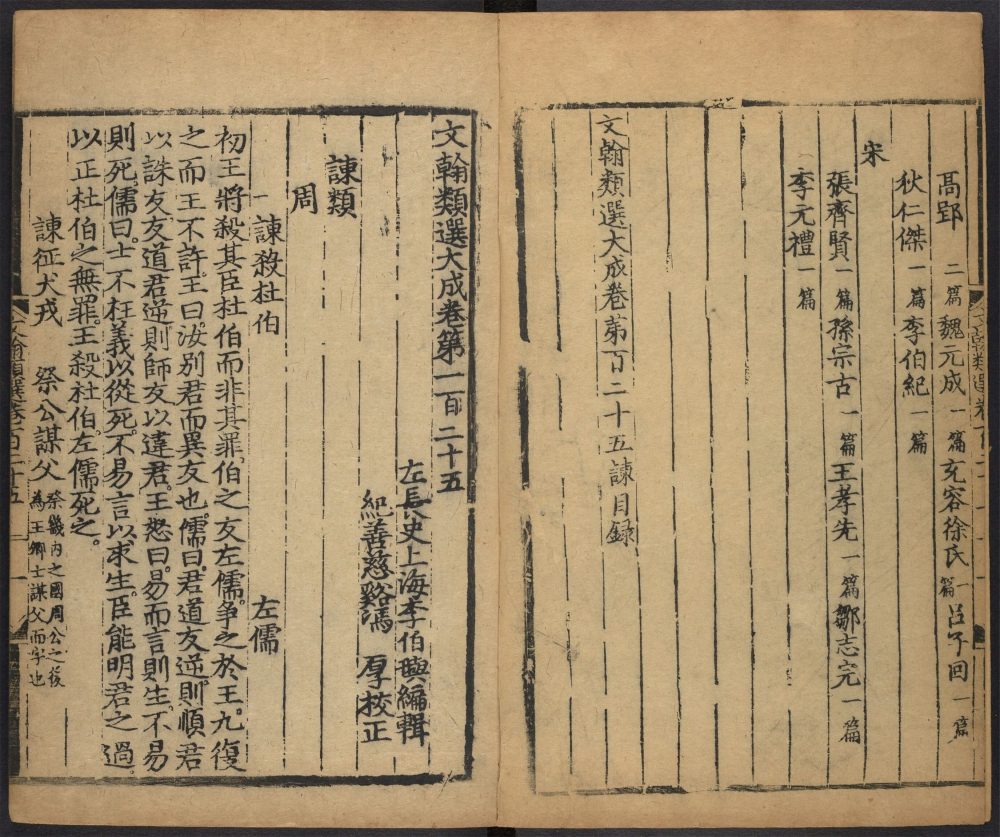 高郢二篇魏元成一篇充容徐氏一篇呂子回一篇
狄仁傑一篇李伯紀一篇
宋
張齊賢一篇孫宗古一篇王孝先一篇鄒志完一篇
李元禮一篇
文翰類選大成卷苐百二十五諫目録
文翰類選大成卷第一百二十五
左長史上海李伯璵編輯
紀善慈谿馮厚校正
諫類
周
諫殺杜伯 左儒
初王將殺其臣杜伯而非其罪伯之友左儒爭之於王九復
之而王不許王曰汝別君而異友也儒曰君道友逆則順君
以誅友友道君逆則師友以違君王怒曰易而言則生不易
則死儒曰士不枉義以從死不易言以求生臣能明君之過
以正杜伯之無罪王殺杜伯左儒死之
諫征犬戎 祭公謀父 祭畿內之國周公之後
為王卿士謀父而字也